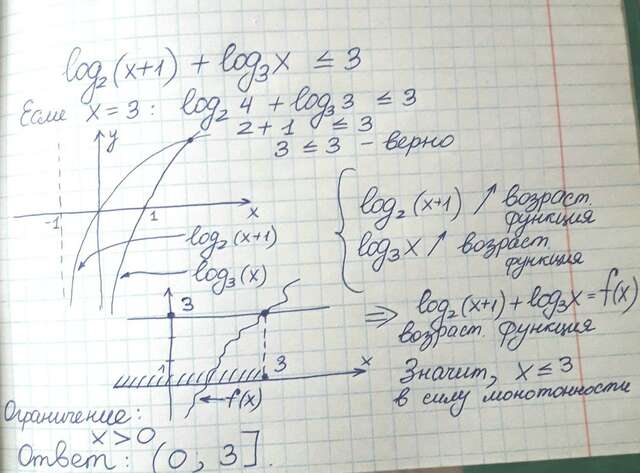 log₂(x+1) + log₃x ≤ 3
Если x = 3 : log₂4 + log₃3 ≤ 3
2 + 1 ≤ 3
3 ≤ 3 - верно
y
-1
1
x
log₂(x+1)
log₃(x)
log₂(x+1) ↗ возраст. функция
log₃x ↗ возраст. функция
⇒ log₂(x+1) + log₃x = f(x)
возраст. функция
3
1
3
x
f(x)
Значит, x ≤ 3
в силу монотонности
Ограничение:
x > 0
Ответ: (0 ; 3].